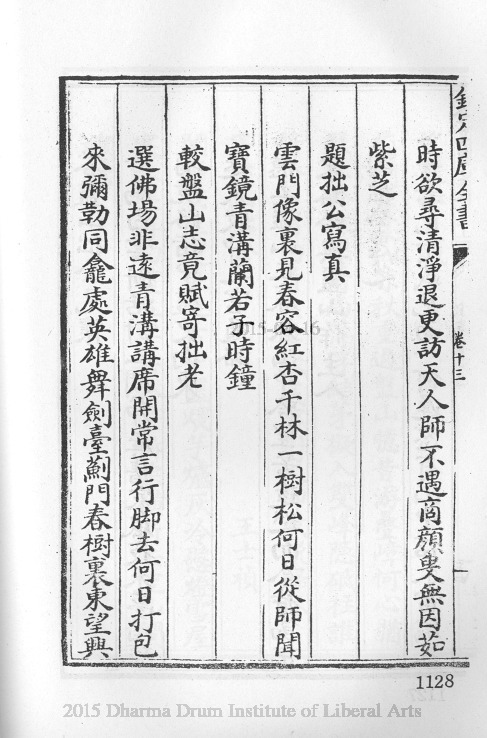 欽定四庫全書
卷十三
時欲尋清淨退更訪天人師不遇商顏叟無因茹
紫芝
題拙公寫真
雲門像裏見春容紅杏千林一樹松何日從師聞
寶鏡青溝蘭若子時鐘
較盤山志竟賦寄拙老
選佛場非遠青溝講席開常言行脚去何日打包
來彌勒同龕處英雄舞劍臺薊門春樹裏東望興
1128
2015 Dharma Drum Institute of Liberal Arts